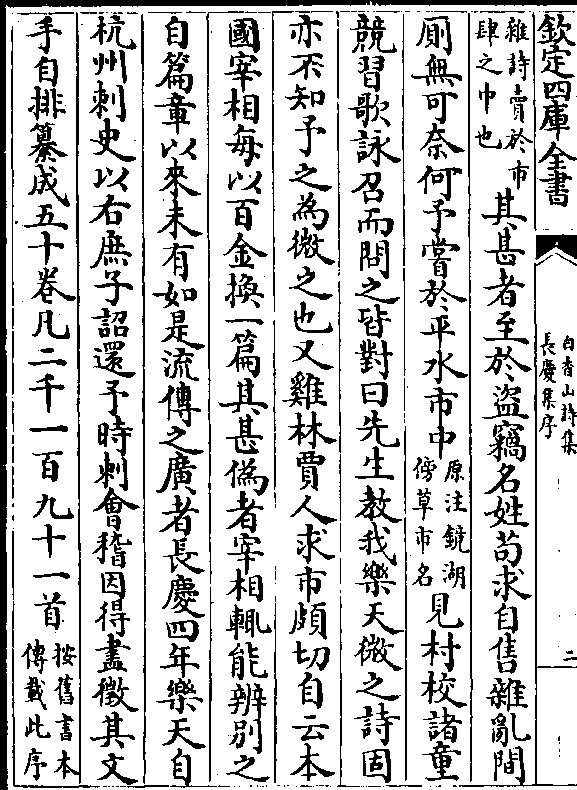 欽定四庫全書
白香山詩集
長慶集序
二
雜詩賣於市
肆之中也
其甚者至於盜竊名姓苟求自售雜亂間
厠無可奈何予嘗於平水市中
原注鏡湖
傍草市名
見村校諸童
競習歌詠召而問之皆對曰先生教我樂天微之詩固
亦不知予之為微之也又雞林賈人求市頗切自云本
國宰相每以百金換一篇其甚偽者宰相輒能辨別之
自篇章以來未有如是流傳之廣者長慶四年樂天自
杭州刺史以右庶子詔還予時刺會稽因得盡徵其文
手自排纂成五十卷凡二千一百九十一首
按舊書本
傳載此序